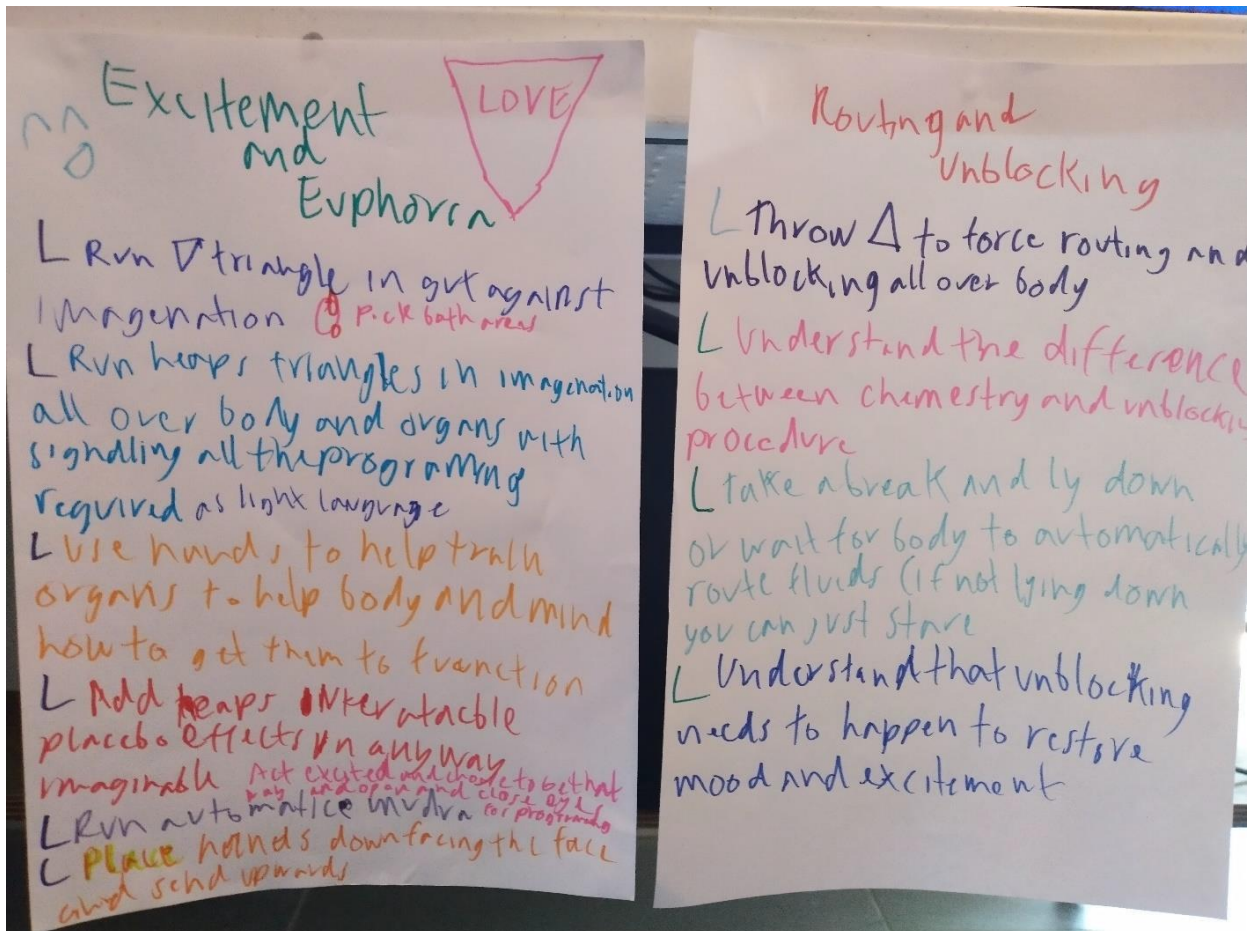 Excitement
and
Euphoria
LOVE
L Run ▽ triangle in gut against
imagenation
Pick both areas
L Run heaps triangles in imagenation
all over body and organs with
signalling all the programing
required as light language
L Use hands to help train
organs to help body and mind
how to get them to function
L Add heaps
placebo effects in any way
imaginable
Act excited and choose to be that
way and open and close eyes
for programing
L Run automatice mudra
L Place hands down facing the face
and send upwards
Routing and
unblocking
L Throw △ to force routing and
unblocking all over body
L Understand the difference
between chemestry and unblocking
procedure
L take a break and ly down
or wait for body to automatically
route fluids (if not lying down
you can just stare
L Understand that unblocking
needs to happen to restore
mood and excitement